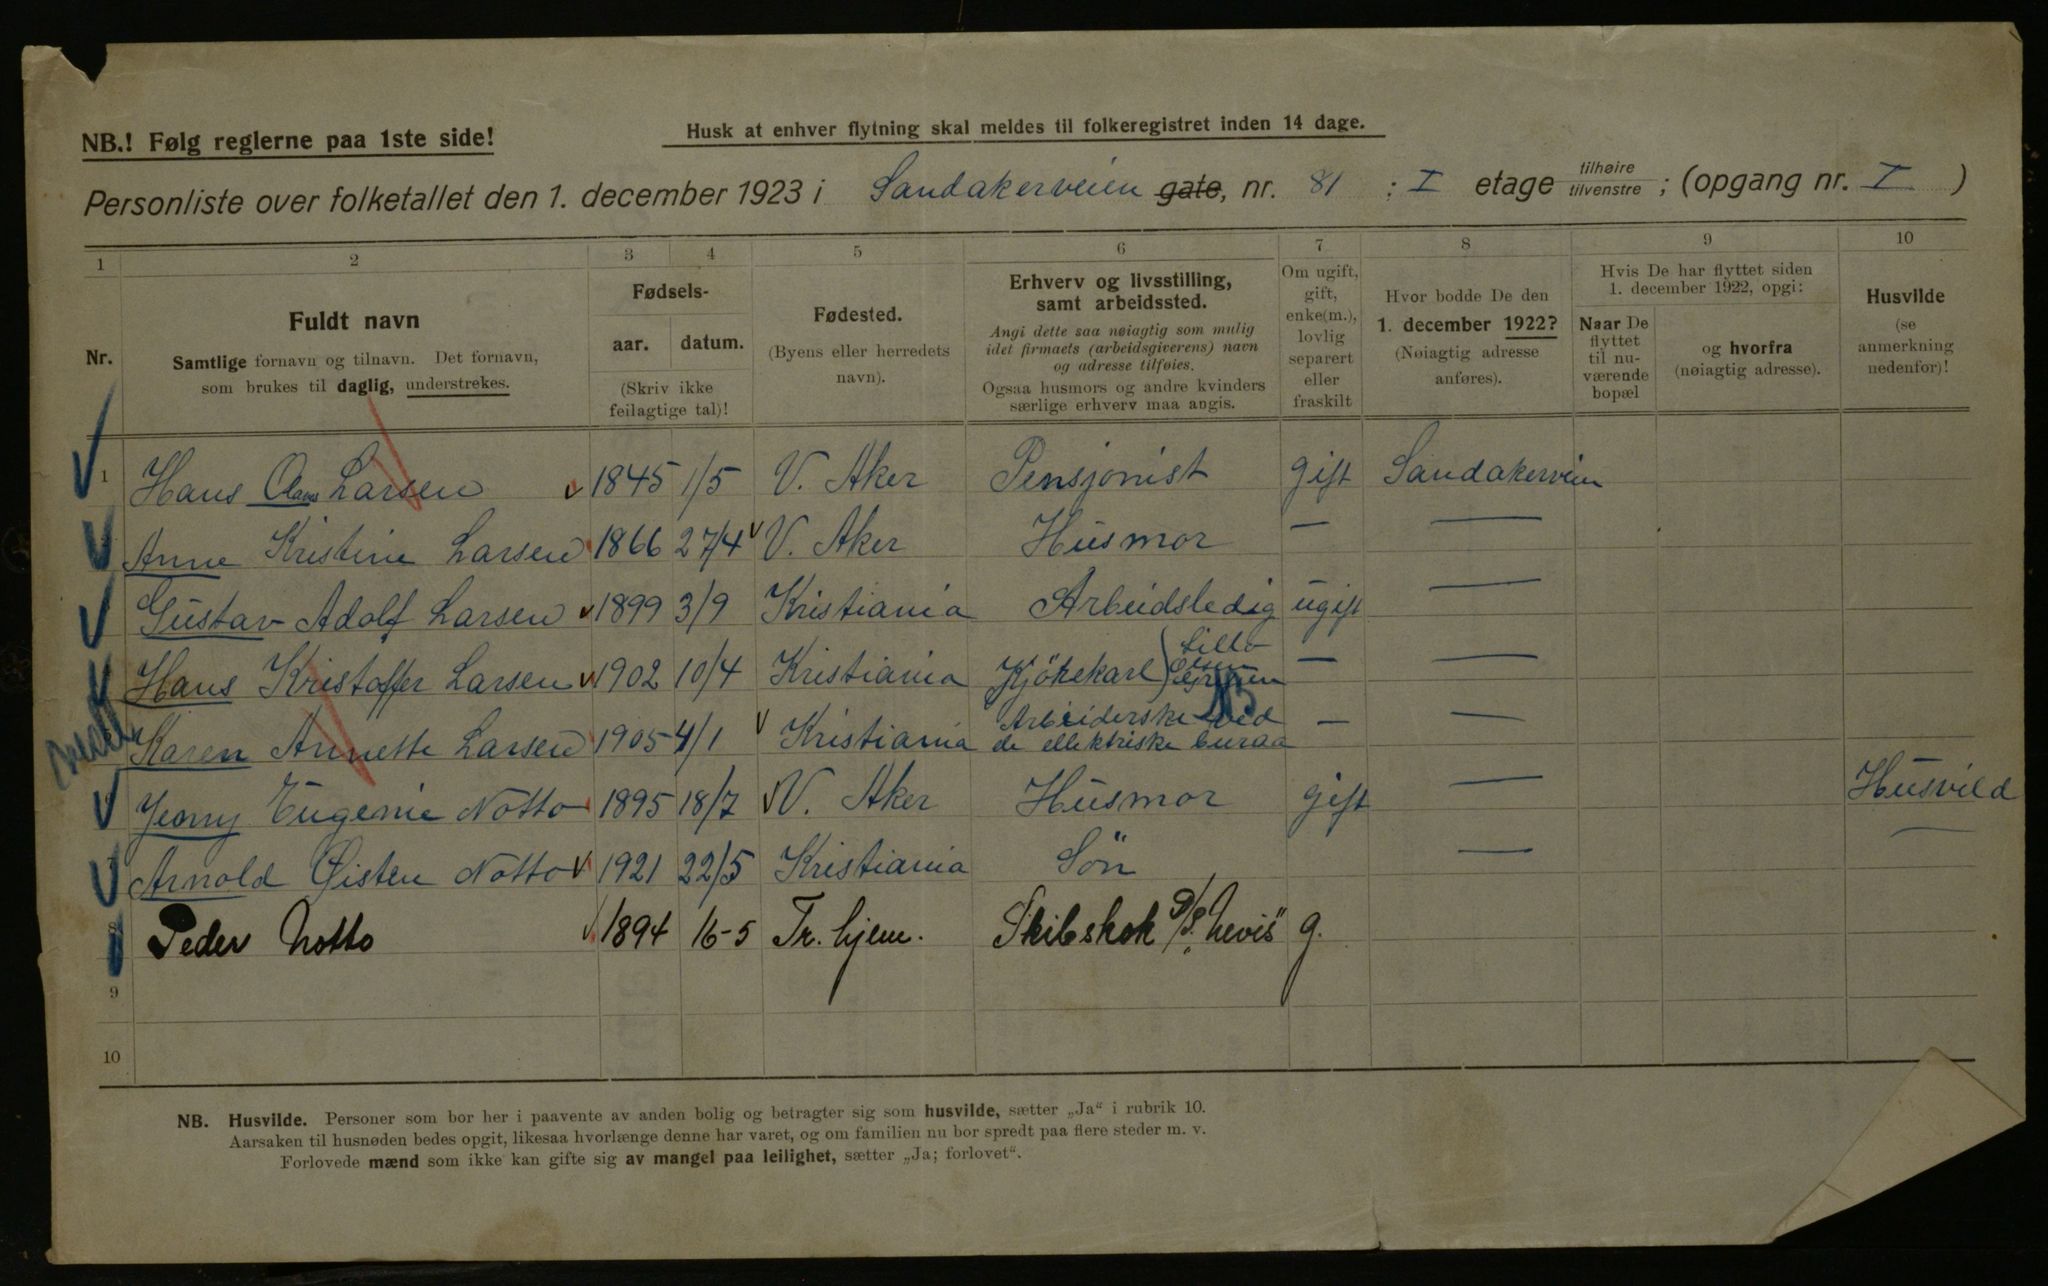 NB.! Følg reglerne paa 1ste side!
Husk at enhver flytning skal meldes til folkeregistret inden 14 dage.
Personliste over folketallet den 1. december 1923 i Sandakerveien gate, nr. 81 ; I etage tilhøire tilvenstre ; (opgang nr. I )
1 2 3 4 5 6 7 8 9 10
Nr.
Fuldt navn
Samtlige fornavn og tilnavn. Det fornavn,
som brukes til daglig, understrekes.
Fødsels-
aar. datum.
(Skriv ikke
feilagtige tal)!
Fødested.
(Byens eller herredets
navn).
Erhverv og livsstilling,
samt arbeidssted.
Angi dette saa nøiagtig som mulig
idet firmaets (arbeidsgiverens) navn
og adresse tilføies.
Ogsaa husmors og andre kvinders
særlige erhverv maa angis.
Om ugift,
gift,
enke(m.),
lovlig
separert
eller
fraskilt
Hvor bodde De den
1. december 1922?
(Nøiagtig adresse
anføres).
Hvis De har flyttet siden
1. december 1922, opgi:
Naar De
flyttet
til nu-
værende
bopæl
og hvorfra
(nøiagtig adresse).
Husvilde
(se
anmerkning
nedenfor)!
1 Hans Olaus Larsen 1845 1/5 V. Aker Pensjonist gift Sandakerveien
Anne Kristine Larsen 1866 27/4 V. Aker Husmor — —
Gustav Adolf Larsen 1899 3/9 Kristiania Arbeidsledig ugift —
Hans Kristoffer Larsen 1902 10/4 Kristiania Kjökekarl Lillo — —
Karen Annette Larsen 1905 4/1 Kristiania Arbeiderske ved — —
de ellektriske buraa
Jenny Eugenie Notto 1895 18/7 V. Aker Husmor gift — Husvild
Arnold Øisten Notto 1921 22/5 Kristiania Sön — —
8 Peder Notto 1894 16-5 Tr. hjem. Skibskok D/S. „Nevis" g.
9
10
NB. Husvilde. Personer som bor her i paavente av anden bolig og betragter sig som husvilde, sætter „Ja" i rubrik 10.
Aarsaken til husnøden bedes opgit, likesaa hvorlænge denne har varet, og om familien nu bor spredt paa flere steder m. v.
Forlovede mænd som ikke kan gifte sig av mangel paa leilighet, sætter „Ja; forlovet".